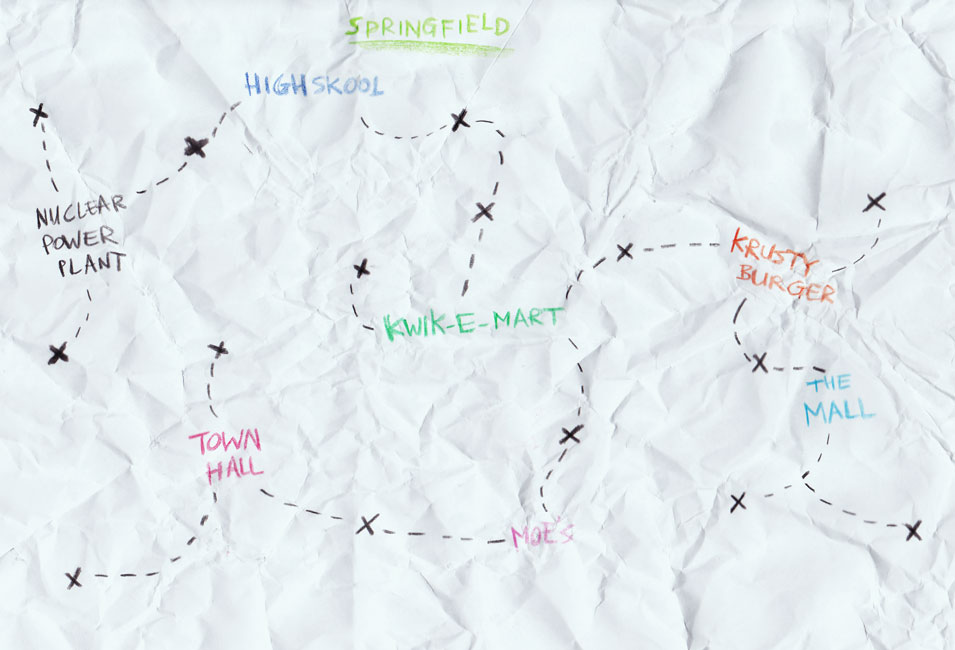 SPRINGFIELD
HIGH SKOOL
NUCLEAR
POWER
PLANT
KRUSTY
BURGER
KWIK-E-MART
THE
MALL
TOWN
HALL
MOE'S